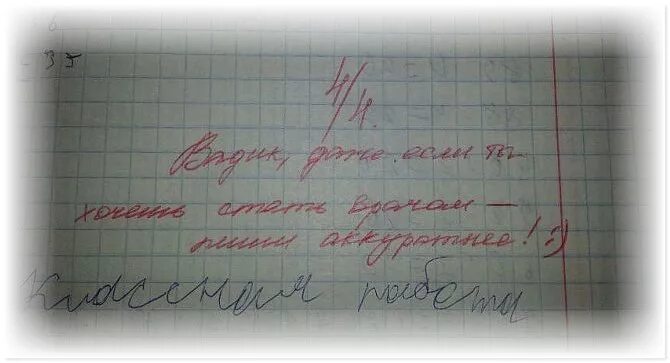 4/4.
Вадик, даже если ты
хочешь стать врачом —
пиши аккуратнее! :)
Классная работа